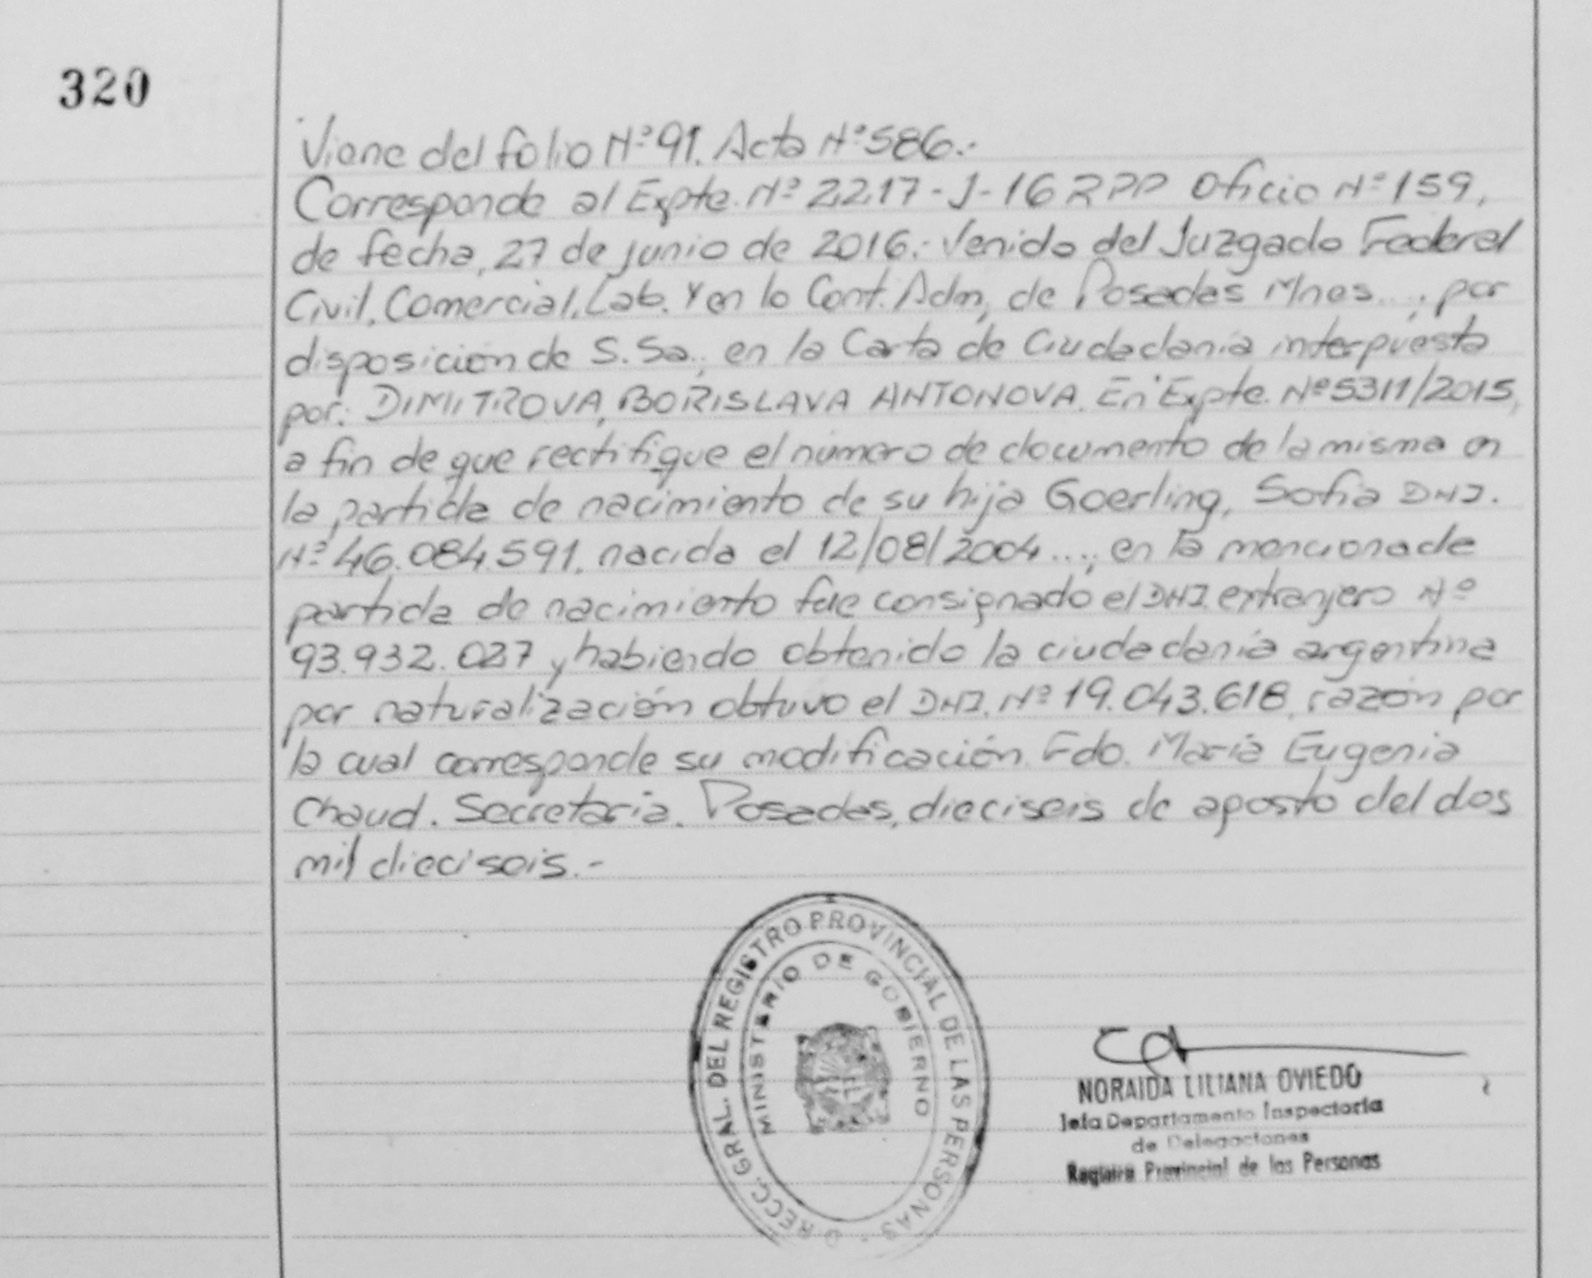 320
Viene del folio Nº 91. Acta Nº 586.-
Corresponde al Expte. Nº 2217-J-16 RPP Oficio Nº 159,
de fecha, 27 de junio de 2016.- Venido del Juzgado Federal
Civil, Comercial, Lab. Y en lo Cont. Adm, de Posadas Mnes...; por
disposición de S.Sa., en la Carta de Ciudadanía interpuesta
por: DIMITROVA, BORISLAVA ANTONOVA. En Expte. Nº 5311/2015,
a fin de que rectifique el número de documento de la misma en
la partida de nacimiento de su hija Goerling, Sofia DNI.
Nº 46.084.591, nacida el 12/08/2004...; en la mencionada
partida de nacimiento fue consignado el DNI extranjero Nº
93.932.027 y habiendo obtenido la ciudadanía argentina
por naturalización obtuvo el DNI. Nº 19.043.618, razón por
la cual corresponde su modificación. Fdo. María Eugenia
Chaud. Secretaria. Posadas, dieciseis de agosto del dos
mil dieciseis.-
DIRECC. GRAL. DEL REGISTRO PROVINCIAL DE LAS PERSONAS -
MINISTERIO DE GOBIERNO
NORAIDA LILIANA OVIEDO
Jefa Departamento Inspectoria
de Delegaciones
Registro Provincial de las Personas